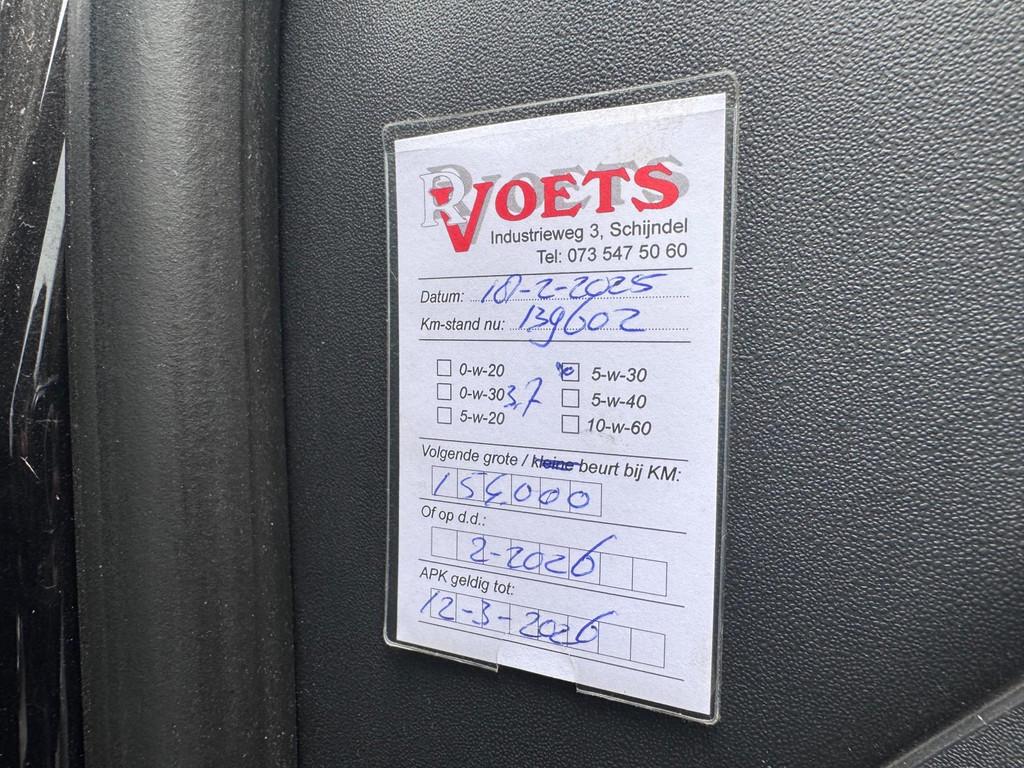 R VOETS
Industrieweg 3, Schijndel
Tel: 073 547 50 60
Datum: 18-2-2025
Km-stand nu: 139602
0-w-20 5-w-30
0-w-30 3,7 5-w-40
5-w-20 10-w-60
Volgende grote / kleine beurt bij KM:
154000
Of op d.d.:
2-2026
APK geldig tot:
12-3-2026